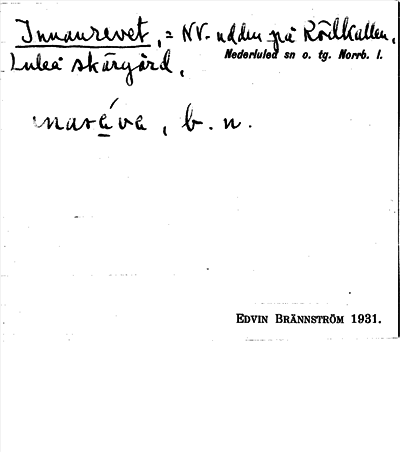 Innanrevet, = NV-udden på Rödkallen,
Nederluleå sn o. tg. Norrb. l.
Luleå skärgård,
ınaráva, b. n.
EDVIN BRÄNNSTRÖM 1931.